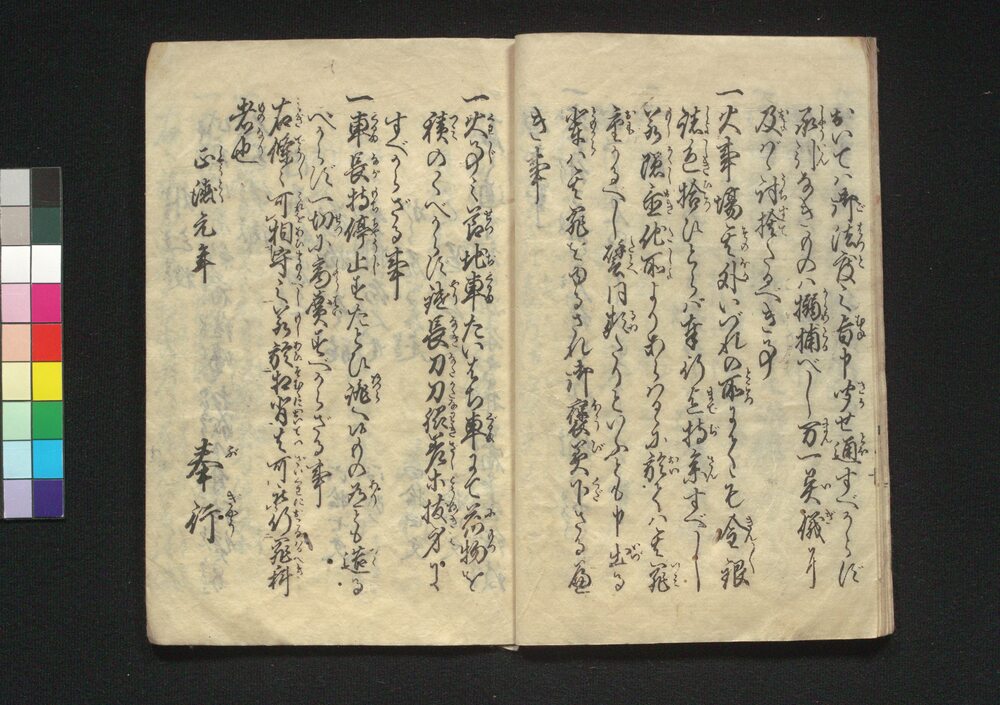 おいては御法度之旨申きかせ通すべからず
承引なきものハ搦捕べし万一異儀に
及ばゞ討捨たるべき事
一火事場其外いづれの所にても金銀
諸色拾ひとらバ奉行迄持参すべし
若隠置他所よりあらハるゝに於てハ其罪
重かるべし譬同類たりといふとも申出る
輩ハ其罪をゆるされ御褒美下さるゝ
き事
一火事之節地車だいはち車にて荷物を
積のくべからず鑓長刀刀脇差等抜身に
すべからざる事
一車長持停止之たとひ誂へ候もの有とも造る
べからず一切小商売すべからざる事
右條々可相守之若於相背者可被行罪科
者也
正徳元年
奉行